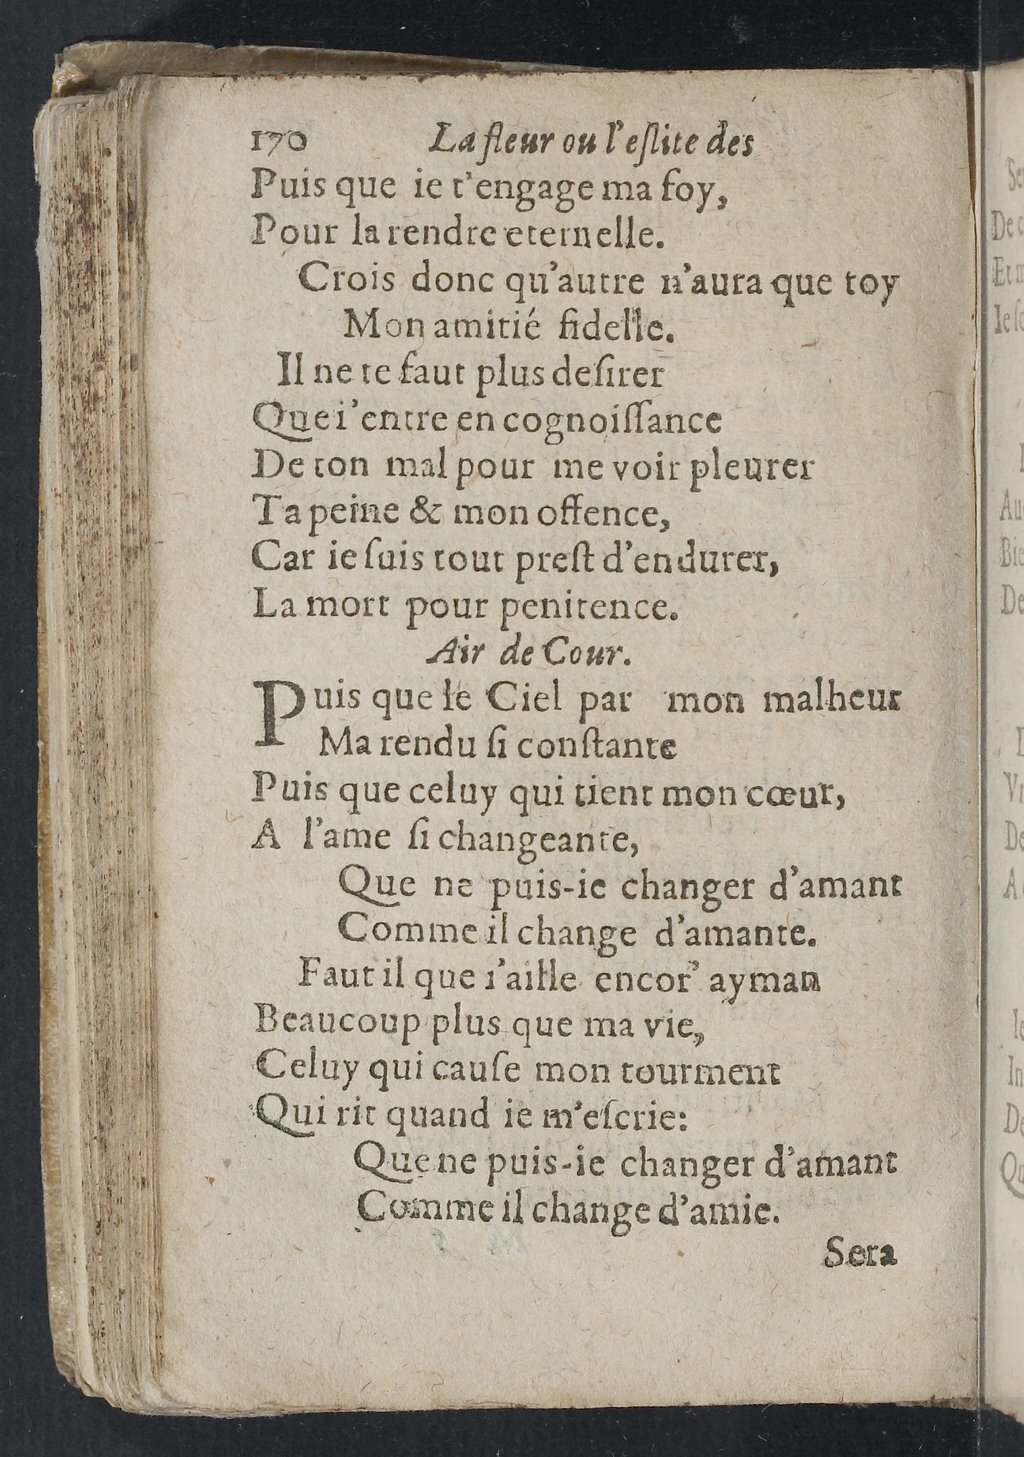 170 La fleur ou l'eſlite des
Puis que ie t'engage ma foy,
Pour la rendre eternelle.
Crois donc qu'autre n'aura que toy
Mon amitié fidelle.
Il ne te faut plus deſirer
Que i'entre en cognoiſſance
De ton mal pour me voir pleurer
Ta peine & mon offence,
Car ie ſuis tout preſt d'endurer,
La mort pour penitence.
Air de Cour.
Puis que le Ciel par mon malheur
Ma rendu ſi conſtante
Puis que celuy qui tient mon cœur,
A l'ame ſi changeante,
Que ne puis-ie changer d'amant
Comme il change d'amante.
Faut il que i'aille encor' ayman
Beaucoup plus que ma vie,
Celuy qui cauſe mon tourment
Qui rit quand ie m'eſcrie:
Que ne puis-ie changer d'amant
Comme il change d'amie.
Sera